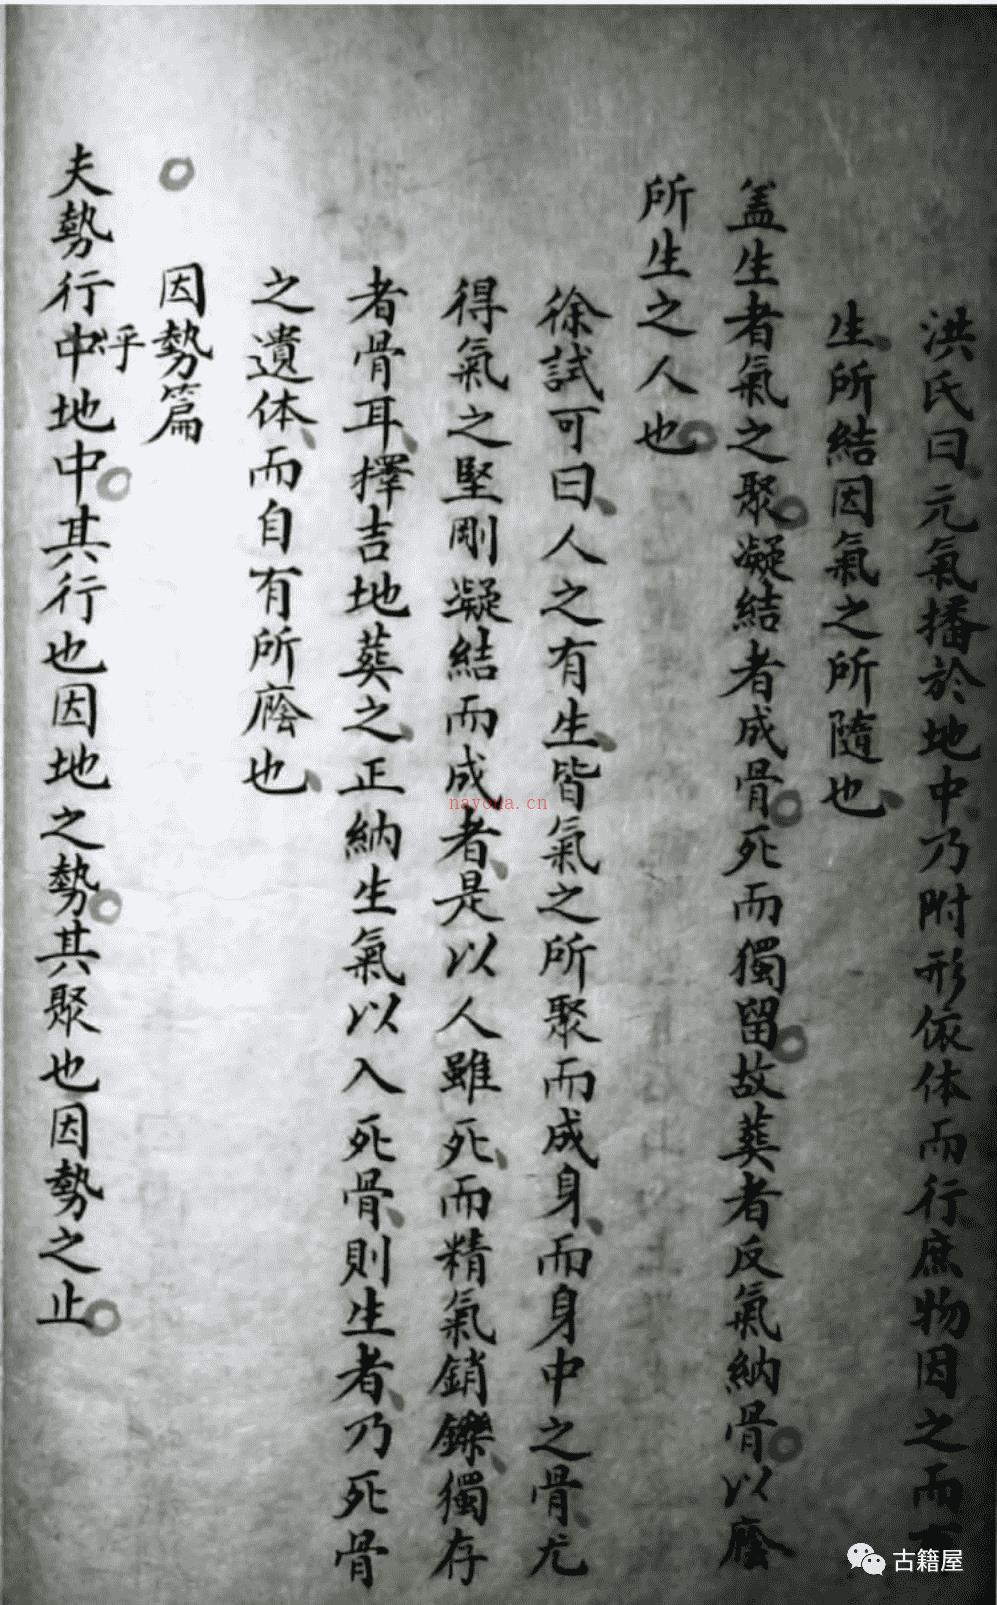 洪氏曰元氣播於地中乃附形依体而行庶物因之而
生所結因氣之所隨也
盖生者氣之聚凝結者成骨死而獨留故葬者反氣納骨以廕
所生之人也
徐試可曰人之有生皆氣之所聚而成身而身中之骨尤
得氣之堅剛凝結而成者是以人雖死而精氣銷鑠獨存
者骨耳擇吉地葬之正納生氣以入死骨則生者乃死骨
之遺体而自有所廕也
因勢篇
夫勢行中乎地中其行也因地之勢其聚也因勢之止
nayona.cn
古籍屋